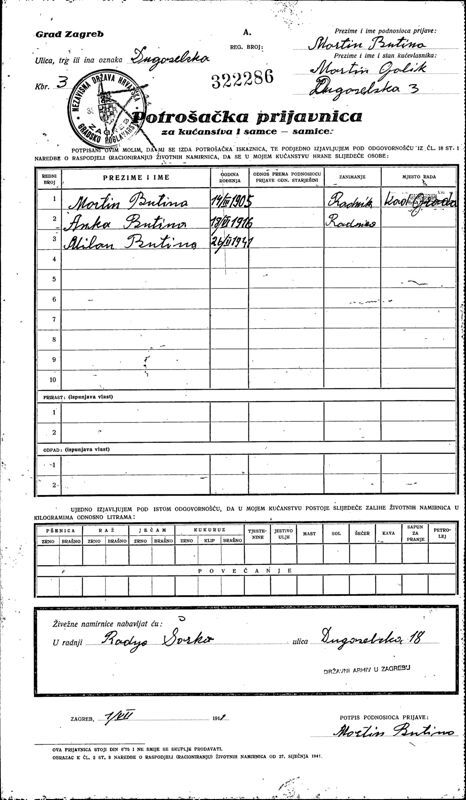 Grad Zagreb
A.
REG. BROJ:
Prezime i ime podnosioca prijave:
Martin Butina
Ulica, trg ili ina oznaka Dugoselska
Prezime i ime i stan kućevlasnika:
Martin Golik
Kbr. 3
322286
Dugoselska 3
NEZAVISNA DRŽAVA HRVATSKA
ZAGREB
GRADSKO POGLAVARSTVO
Potrošačka prijavnica
za kućanstva i samce — samice:
POTPISANI OVIM MOLIM, DA MI SE IZDA POTROŠAČKA ISKAZNICA, TE PODJEDNO IZJAVLJUJEM POD ODGOVORNOŠĆU IZ ČL. 18 ST. 1
NAREDBE O RASPODJELI (RACIONIRANJU) ŽIVOTNIH NAMIRNICA, DA SE U MOJEM KUĆANSTVU HRANE SLIJEDEĆE OSOBE:
REDNI BROJ
PREZIME I IME
GODINA ROĐENJA
ODNOS PREMA PODNOSIOCU PRIJAVE ODN. STARJEŠINI
ZANIMANJE
MJESTO RADA
1 Martin Butina 1905 Radnik Grada
2 Anka Butina 1916
3 Milan Butina 1941
4
5
6
7
8
9
10
PRIRAST: (ispunjava vlast)
1
2
ODPAD: (ispunjava vlast)
1
2
UJEDNO IZJAVLJUJEM POD ISTOM ODGOVORNOŠĆU, DA U MOJEM KUĆANSTVU POSTOJE SLIJEDEĆE ZALIHE ŽIVOTNIH NAMIRNICA U
KILOGRAMIMA ODNOSNO LITRAMA:
PŠENICA RAŽ JEČAM KUKURUZ TJESTENINE JESTIVO ULJE MAST SOL ŠEĆER KAVA SAPUN ZA PRANJE PETROLEJ
ZRNO BRAŠNO ZRNO BRAŠNO ZRNO BRAŠNO ZRNO KLIP BRAŠNO
POVEĆANJE
Živežne namirnice nabavljat ću:
U radnji ulica Dugoselska 18
DRŽAVNI ARHIV U ZAGREBU
ZAGREB, 1/VII 194
POTPIS PODNOSIOCA PRIJAVE:
Martin Butina
OVA PRIJAVNICA STOJI DIN 0'75 I NE SMIJE SE SKUPLJE PRODAVATI.
OBRAZAC K ČL. 2 ST. 3 NAREDBE O RASPODJELI (RACIONIRANJU) ŽIVOTNIH NAMIRNICA OD 27. SIJEČNJA 1941.